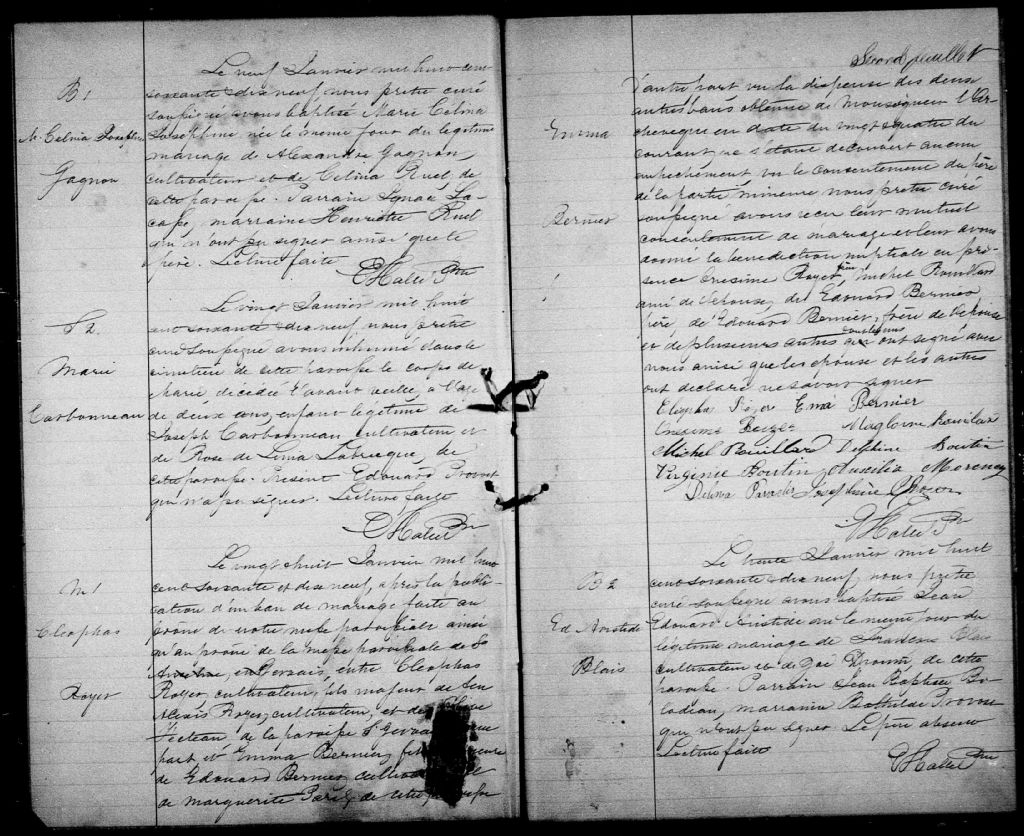 B1
M. Celina Josephine
Gagnon
Le neuf Janvier mil huit cent
soixante dix neuf nous prêtre curé
soussigné avons baptisé Marie Celina
Josephine née le même jour du légitime
mariage de Alexandre Gagnon,
cultivateur et de Celina Ruel, de
cette paroisse. Parrain Ignace La-
casse, marraine Henriette Ruel
qui n'ont pu signer ainsi que le
père. Lecture faite
Hallé Ptre
S2.
Marie
Carbonneau
Le vingt Janvier mil huit
cent soixante et dix neuf, nous prêtre
curé soussigné avons inhumé dans le
cimetière de cette paroisse le corps de
Marie, décédée l'avant veille, à l'age
de deux ans, enfant légitime de
Joseph Carbonneau, cultivateur et
de Rose de Lima Labrecque, de
cette paroisse. Présent Edouard Provost
qui n'a pu signer. Lecture faite
Hallé Ptre
M1
Cleophas
Royer
Le vingt huit Janvier mil huit
cent soixante et dix neuf, après la publi-
cation d'un ban de mariage faite au
prône de notre messe paroissiale ainsi
qu'au prône de la messe paroissiale de St
Gervais, entre Cleophas
Royer, cultivateur, fils majeur de feu
Alexis Royer, cultivateur, et de
Fecteau de la paroisse St Gervais
part et Emma Bernier, fille
de Edouard Bernier,
de marguerite Paris, de cette paroisse
Second feuillet
Emma
Bernier
D'autre part vu la dispense des deux
autres bans obtenue de Monseigneur l'Ar-
chevêque en date du vingt quatre du
courant, ne s'étant découvert aucun
empêchement, vu le consentement du père
de la partie mineure nous prêtre curé
soussigné avons reçu leur mutuel
consentement de mariage et leur avons
donné la bénédiction nuptiale en pré-
sence Onesime Royer, frère, Michel Rouillard
ami de l'épouse, de Edouard Bernier
père, de Edouard Bernier, frère de l'épouse
et de plusieurs autres dont quelques uns ont signé avec
nous ainsi que les épouse et les autres
ont déclaré ne savoir signer
Emma Bernier
Onesime
Michel Rouillard Delphine Boutin
Virginie Boutin Auxilia Morency
Josephine
Hallé Ptre
B2
Ed. Aristide
Blais
Le trente Janvier mil huit
cent soixante dix neuf, nous prêtre
curé soussigné avons baptisé Jean
Edouard Aristide né le même jour du
légitime mariage de Blais
cultivateur et de Zoé Drouin, de cette
paroisse. Parrain Jean Baptiste Bi-
lodeau, marraine Bathilde Provost
qui n'ont pu signer. Le père absent
Lecture faite
Hallé Ptre